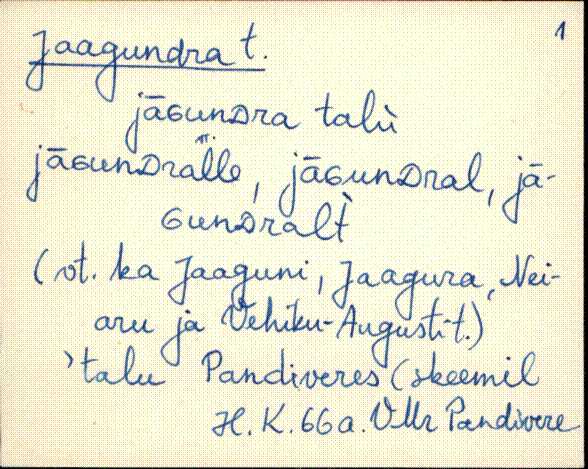 Jaagundra t. 1
jāɢunᴅra talù
jāɢunᴅral̀le, jāɢunᴅral, jā-
ɢunᴅralt̀
(vt. ka Jaaguni, Jaagura, Nei-
aru ja Vehiku-Augusti t.)
'talu Pandiveres (skeemil
H. K. 66a. VMr Pandivere